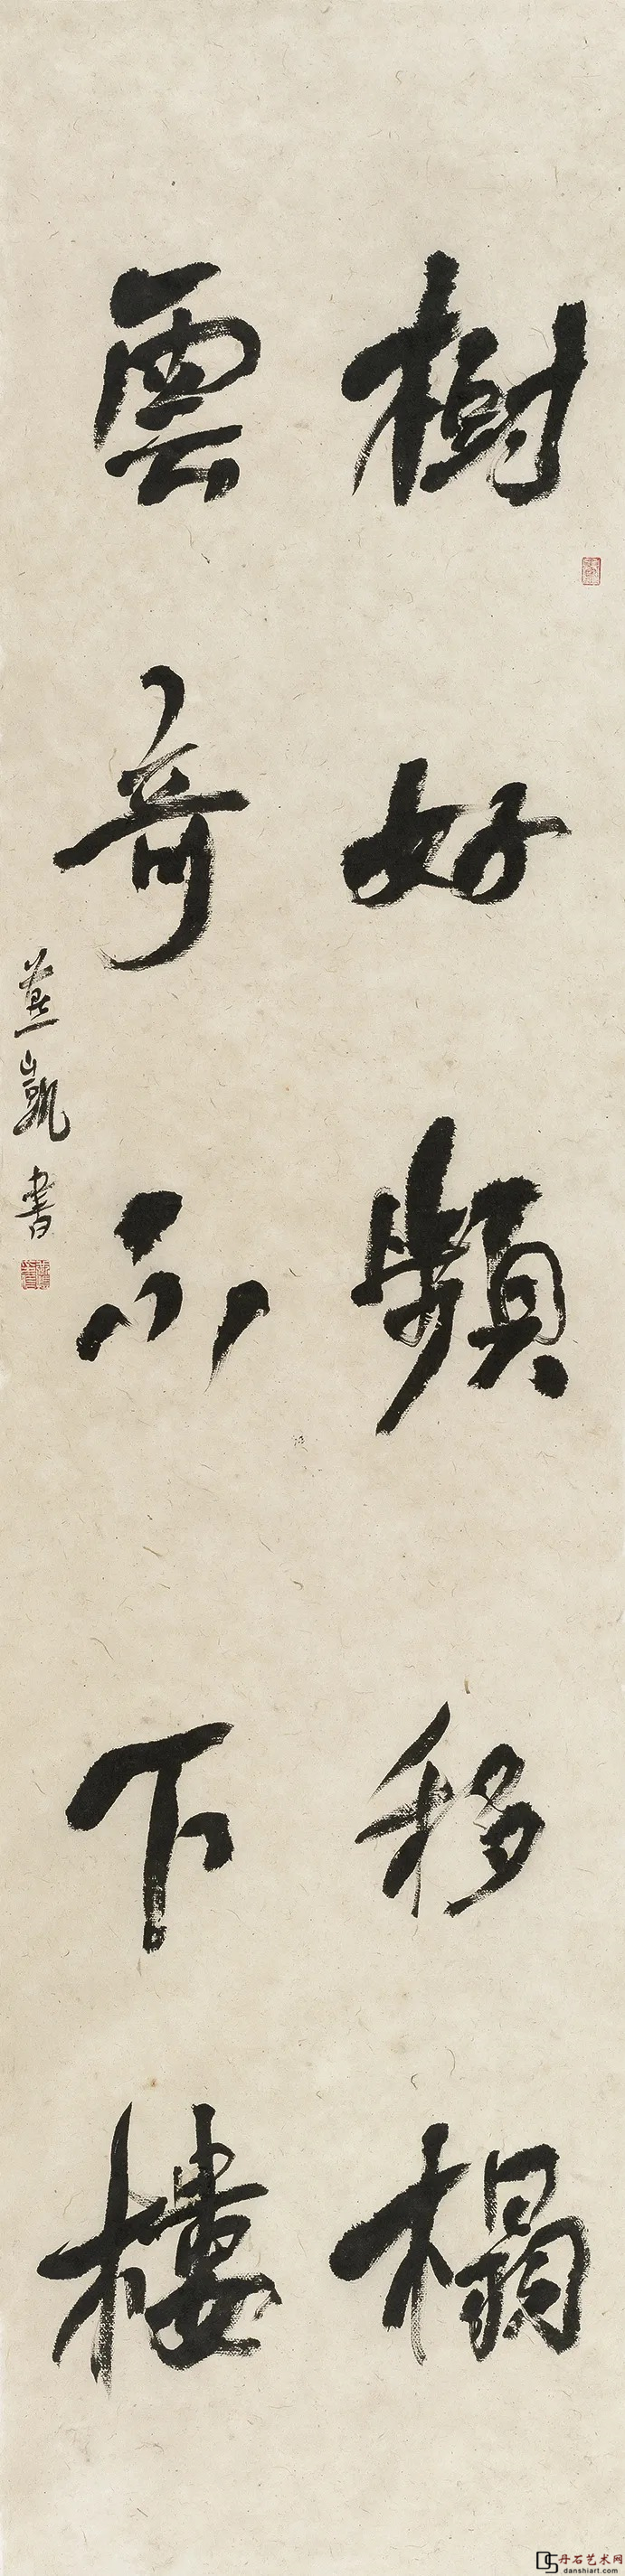 樹好頻移榻
雲奇不下樓
燕凱書
丹石艺术网
danshiart.com